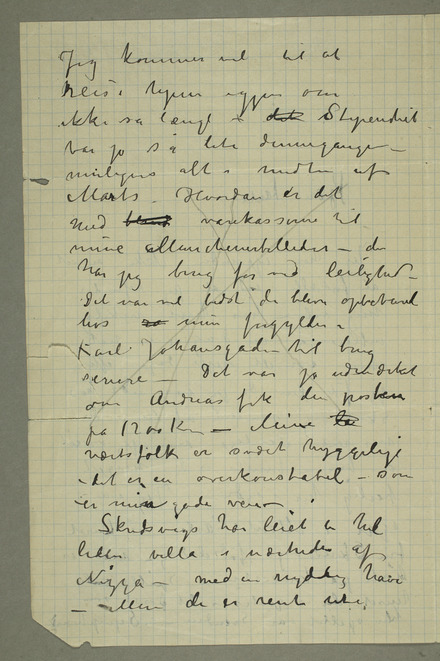 Jeg kommer vel til at
reise hjem igjen om
ikke så længe – Stipendiet
var jo så lite dennegangen –
muligens alt i midten af
Marts. Hvordan er det
med varekasserne til
mine – de
har jeg brug for ved leilighed –
Det var vel bedst de blev opbevaret
hos min forgylder i
Karl Johansgade til brug
senere – Det var jo udmærket
om Andreas fik den posten
på 1200 Kr – Mine
værtsfolk er svært hyggelige
– det er en overkonstabel – som
er min gode ven
Skredsvigs har leiet en hel
liden villa i nærheden af
Nizza – med en nydelig have
– Men de er